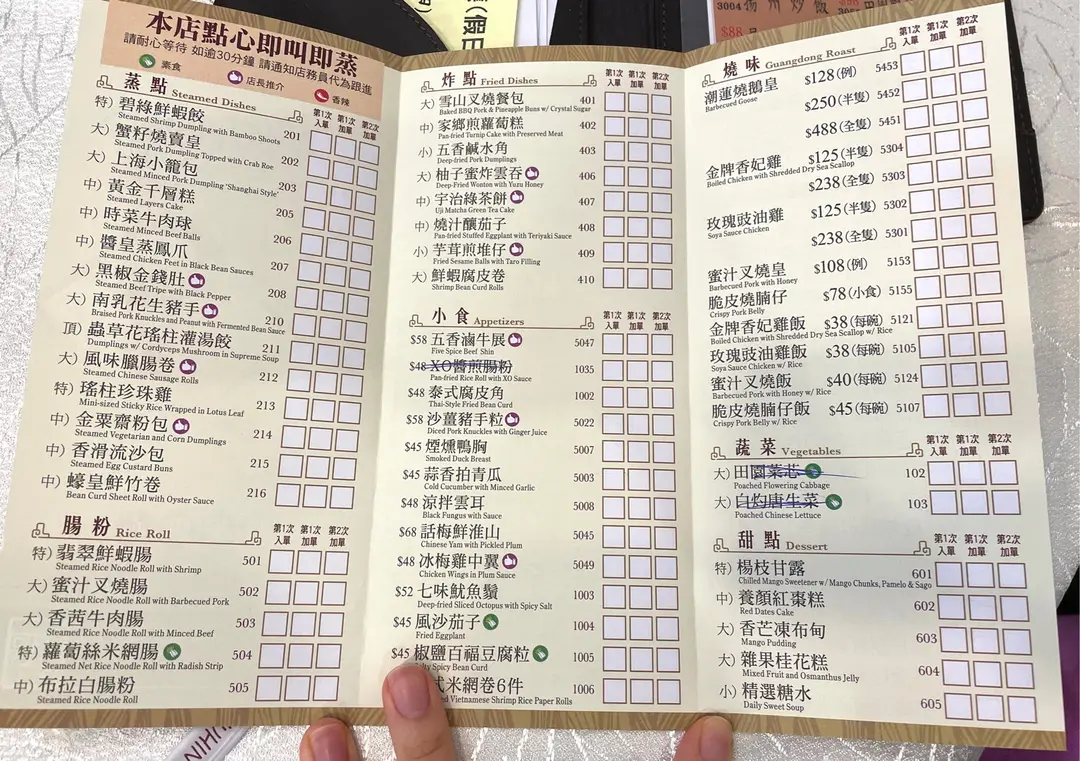 3004 揚州炒飯
$88
本店點心即叫即蒸
請耐心等待 如逾30分鐘 請通知店務員代為跟進
素食 店長推介 香辣
蒸點 Steamed Dishes 第1次入單 第1次加單 第2次加單
特) 碧綠鮮蝦餃 201
Steamed Shrimp Dumpling with Bamboo Shoots
大) 蟹籽燒賣皇 202
Steamed Pork Dumpling Topped with Crab Roe
大) 上海小籠包 203
Steamed Minced Pork Dumpling 'Shanghai Style'
中) 黃金千層糕 205
Steamed Layers Cake
中) 時菜牛肉球 206
Steamed Minced Beef Balls
中) 醬皇蒸鳳爪 207
Steamed Chicken Feet in Black Bean Sauces
大) 黑椒金錢肚 208
Steamed Beef Tripe with Black Pepper
大) 南乳花生豬手 210
Braised Pork Knuckles and Peanut with Fermented Bean Sauce
頂) 蟲草花瑤柱灌湯餃 211
Dumplings w/ Cordyceps Mushroom in Supreme Soup
大) 風味臘腸卷 212
Steamed Chinese Sausage Rolls
特) 瑤柱珍珠雞 213
Mini-sized Sticky Rice Wrapped in Lotus Leaf
中) 金粟齋粉包 214
Steamed Vegetarian and Corn Dumplings
中) 香滑流沙包 215
Steamed Egg Custard Buns
中) 蠔皇鮮竹卷 216
Bean Curd Sheet Roll with Oyster Sauce
腸粉 Rice Roll 第1次入單 第1次加單 第2次加單
特) 翡翠鮮蝦腸 501
Steamed Rice Noodle Roll with Shrimp
大) 蜜汁叉燒腸 502
Steamed Rice Noodle Roll with Barbecued Pork
大) 香茜牛肉腸 503
Steamed Rice Noodle Roll with Minced Beef
特) 蘿蔔絲米網腸 504
Steamed Net Rice Noodle Roll with Radish Strip
中) 布拉白腸粉 505
Steamed Rice Noodle Roll
炸點 Fried Dishes 第1次入單 第1次加單 第2次加單
大) 雪山叉燒餐包 401
Baked BBQ Pork & Pineapple Buns w/ Crystal Sugar
中) 家鄉煎蘿蔔糕 402
Pan-fried Turnip Cake with Preserved Meat
小) 五香鹹水角 403
Deep-fried Pork Dumplings
大) 柚子蜜炸雲吞 406
Deep-Fried Wonton with Yuzu Honey
中) 宇治綠茶餅 407
Uji Matcha Green Tea Cake
中) 燒汁釀茄子 408
Pan-fried Stuffed Eggplant with Teriyaki Sauce
小) 芋茸煎堆仔 409
Fried Sesame Balls with Taro Filling
大) 鮮蝦腐皮卷 410
Shrimp Bean Curd Rolls
小食 Appetizers 第1次入單 第1次加單 第2次加單
$58 五香滷牛展 5047
Five Spice Beef Shin
$48 XO醬煎腸粉 1035
Pan-fried Rice Roll with XO Sauce
$48 泰式腐皮角 1002
Thai-Style Fried Bean Curd
$58 沙薑豬手粒 5022
Diced Pork Knuckles with Ginger Juice
$45 煙燻鴨胸 5007
Smoked Duck Breast
$45 蒜香拍青瓜 5003
Cold Cucumber with Minced Garlic
$48 涼拌雲耳 5008
Black Fungus with Sauce
$68 話梅鮮淮山 5045
Chinese Yam with Pickled Plum
$48 冰梅雞中翼 5049
Chicken Wings in Plum Sauce
$52 七味魷魚鬚 1003
Deep-fried Sliced Octopus with Spicy Salt
$45 風沙茄子 1004
Fried Eggplant
$45 椒鹽百福豆腐粒 1005
Salty Spicy Bean Curd
式米網卷6件 1006
Vietnamese Shrimp Rice Paper Rolls
燒味 Guangdong Roast 第1次入單 第1次加單 第2次加單
潮蓮燒鵝皇 $128(例) 5453
Barbecued Goose
$250(半隻) 5452
$488(全隻) 5451
金牌香妃雞 $125(半隻) 5304
Boiled Chicken with Shredded Dry Sea Scallop
$238(全隻) 5303
玫瑰豉油雞 $125(半隻) 5302
Soya Sauce Chicken
$238(全隻) 5301
蜜汁叉燒皇 $108(例) 5153
Barbecued Pork with Honey
脆皮燒腩仔 $78(小食) 5155
Crispy Pork Belly
金牌香妃雞飯 $38(每碗) 5121
Boiled Chicken with Shredded Dry Sea Scallop w/ Rice
玫瑰豉油雞飯 $38(每碗) 5105
Soya Sauce Chicken w/ Rice
蜜汁叉燒飯 $40(每碗) 5124
Barbecued Pork with Honey w/ Rice
脆皮燒腩仔飯 $45(每碗) 5107
Crispy Pork Belly w/ Rice
蔬菜 Vegetables 第1次入單 第1次加單 第2次加單
大) 田園菜芯 102
Poached Flowering Cabbage
大) 白灼唐生菜 103
Poached Chinese Lettuce
甜點 Dessert 第1次入單 第1次加單 第2次加單
特) 楊枝甘露 601
Chilled Mango Sweetener w/ Mango Chunks, Pamelo & Sago
中) 養顏紅棗糕 602
Red Dates Cake
大) 香芒凍布甸 603
Mango Pudding
大) 雜果桂花糕 604
Mixed Fruit and Osmanthus Jelly
小) 精選糖水 605
Daily Sweet Soup